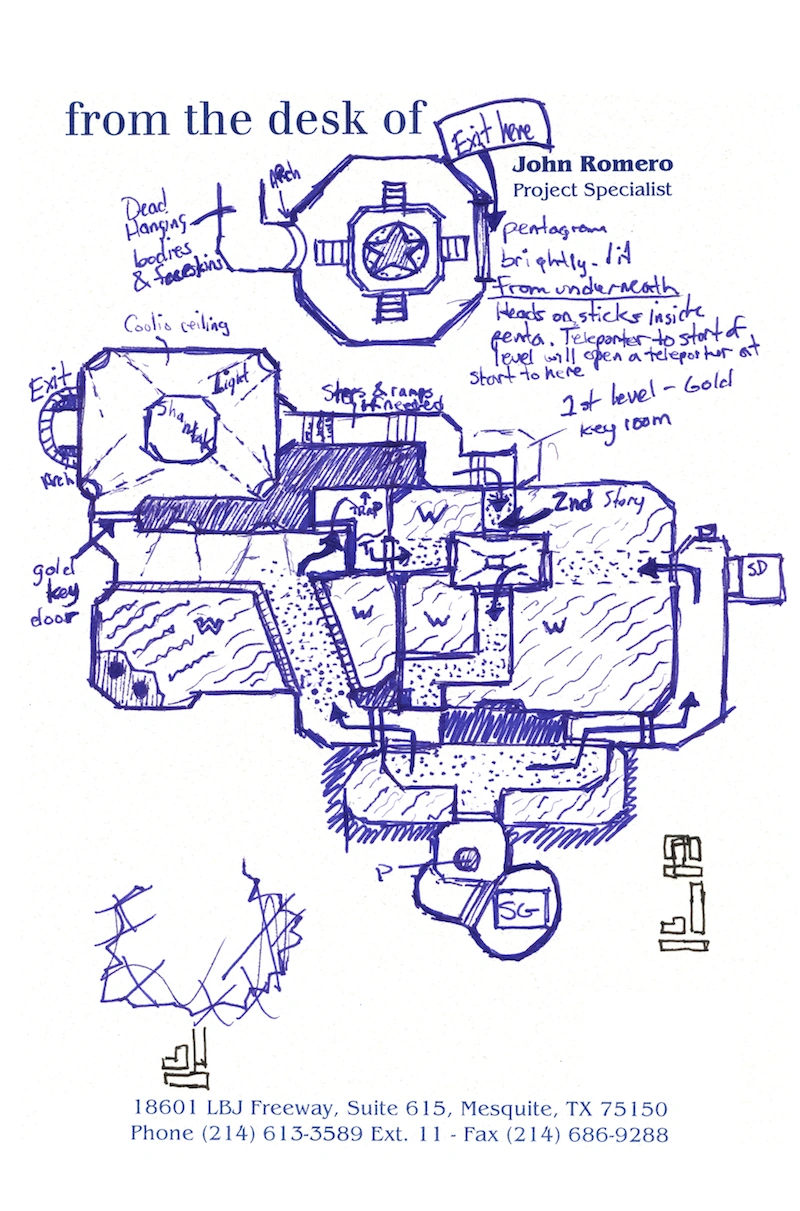 from the desk of
Exit here
John Romero
Project Specialist
Arch
Dead
Hanging
bodies
& foreskins
pentagram
brightly-lit
from underneath
Heads on sticks inside
penta. Teleporter to start of
level will open a teleporter at
start to here
Coolio ceiling
Light
Exit
Arch
Steps & ramps
if needed
1st level - Gold
key room
TRAP
W
2nd Story
gold
key
door
W
W
W
W
SD
P
SG
18601 LBJ Freeway, Suite 615, Mesquite, TX 75150
Phone (214) 613-3589 Ext. 11 - Fax (214) 686-9288